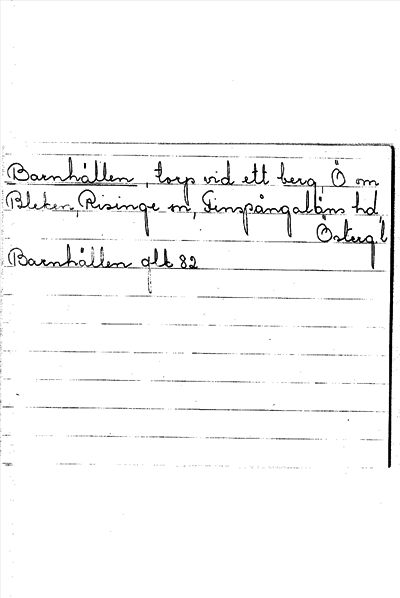 Barnhållen, torp vid ett berg, Ö om
Bleken, Risinge sn, Finspångaläns hd,
Österg l
Barnhållen glk 82